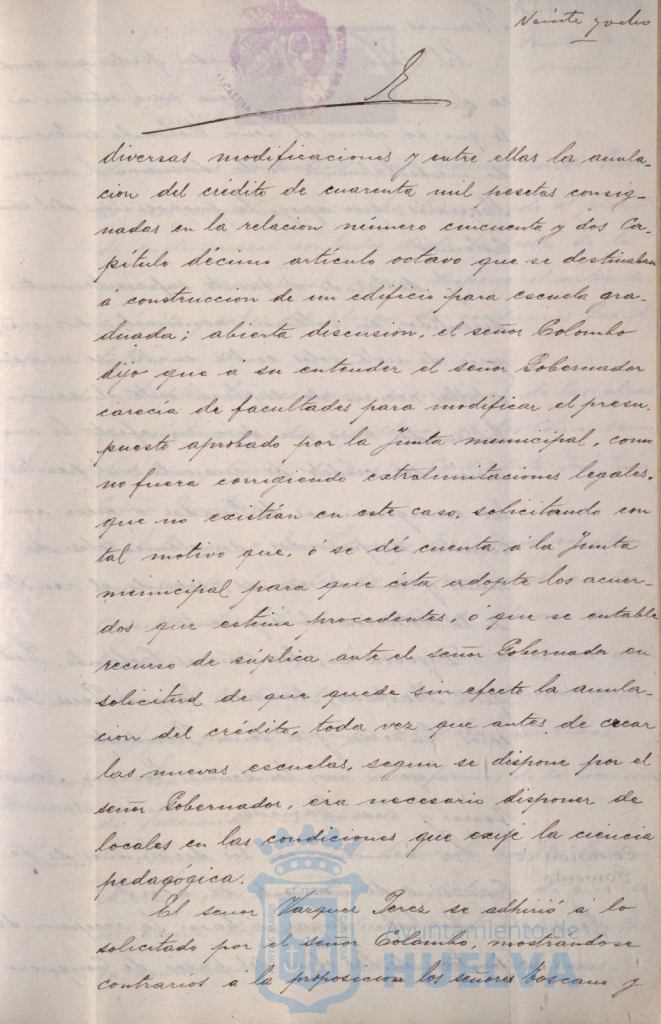 Veinte y ocho
diversas modificaciones y entre ellas la anula-
cion del crédito de cuarenta mil pesetas consig-
nadas en la relacion número cincuenta y dos Ca-
pítulo décimo artículo octavo que se destinaban
á construccion de un edificio para escuela gra-
duada; abierta discusion, el señor Colombo
dijo que á su entender el señor Gobernador
carecía de facultades para modificar el presu-
puesto aprobado por la Junta municipal, como
no fuera corrigiendo extralimitaciones legales,
que no existián en este caso, solicitando con
tal motivo que, ó se dé cuenta á la Junta
municipal para que ésta adopte los acuer-
dos que estime procedentes, ó que se entable
recurso de súplica ante el señor Gobernador en
solicitud de que quede sin efecto la anula-
cion del crédito, toda vez que antes de crear
las nuevas escuelas, segun se dispone por el
señor Gobernador, era necesario disponer de
locales en las condiciones que exije la ciencia
pedagógica.
El señor Vazquez Perez se adhirió á lo
solicitado por el señor Colombo, mostrandose
contrarios á la proposicion los señores Toscano y
Ayuntamiento de
HUELVA